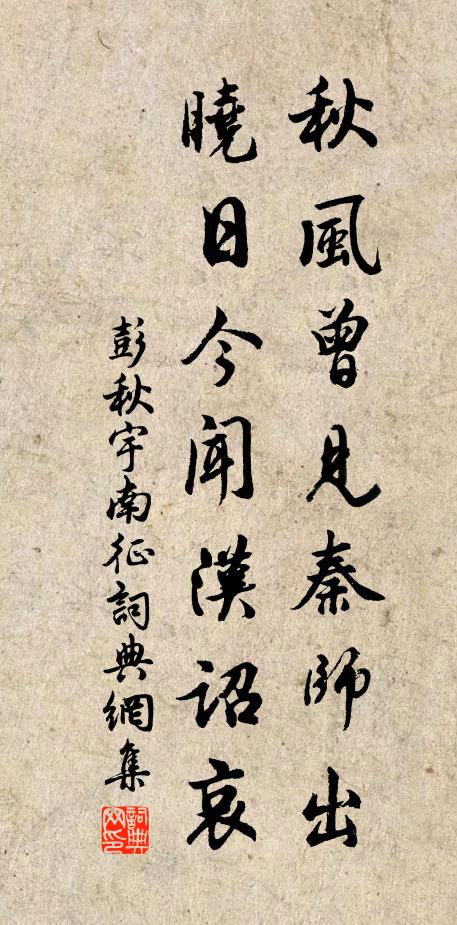 秋風曾見秦師出
曉日今聞漢詔哀
彭秋宇南征詞典網集
詞典网印